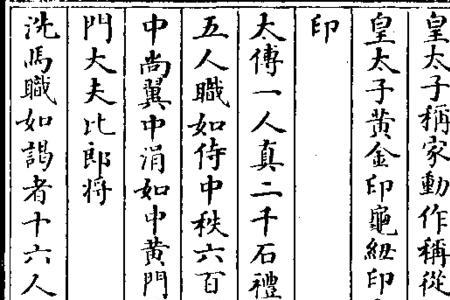 皇太子稱家動作稱從
皇太子黃金印龜紐印
印
太傅一人真二千石禮
五人職如侍中秩六百
中尚翼中涓如中黃門
門大夫比郎将
洗馬職如謁者十六人